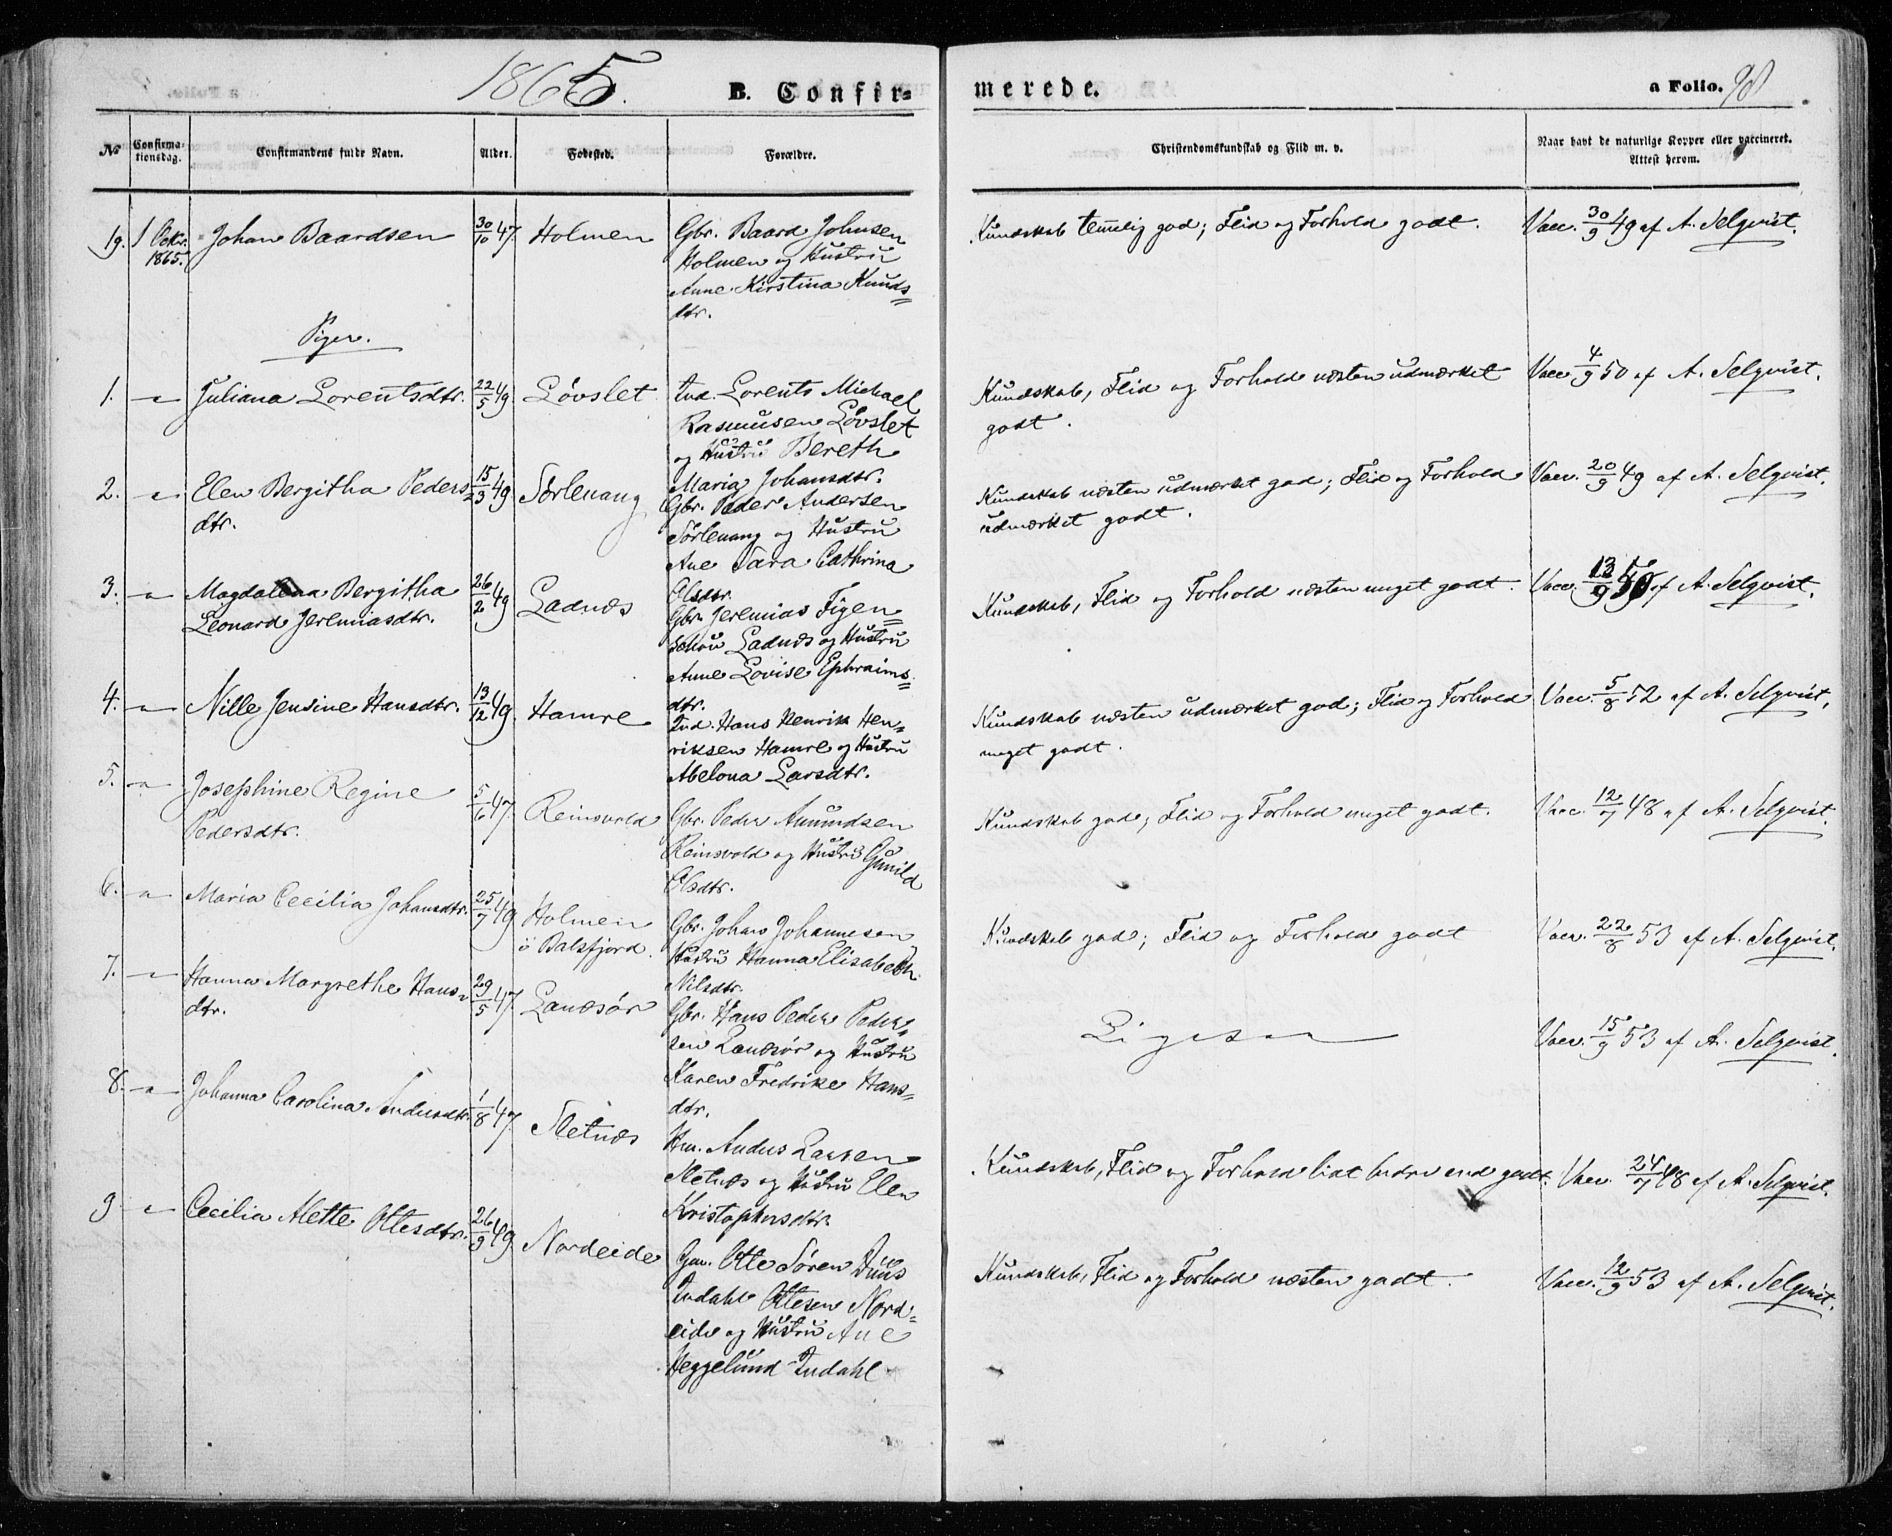 1865.
B. Confirmerede.
a Folio. 98
No
Confirmationsdag.
Confirmandens fulde Navn.
Alder.
Fødested.
Forældre.
Christendomskundskab og Flid m. v.
Naar havt de naturlige Kopper eller vaccineret. Attest herom.
19. 1 Oktr. 1865. Johan Baardsen 30/10 47. Holmen
Gbr. Baard Johnsen
Holmen og Hustru
Anne Kirstina Knuds=
dtr.
Kundskab temmelig god; Flid og Forhold godt.
Vacc. 30/9 49 af A. Selqvist.
Piger.
1. " Juliana Lorentsdtr. 22/5 49. Løvslet
Ind. Lorents Michael
Rasmusen Løvslet
og Hustru Bereth
Maria Johansdtr.
Kundskab, Flid og Forhold næsten udmærket
godt.
Vacc. 4/9 50 af A. Selqvist.
2. " Elen Bergitha Peders=
dtr.
15/3 49 Sørlenang
Gbr. Peder Andersen
Sørlenang og Hustru
Ane Sara Cathrina
Olsdtr.
Kundskab næsten udmærket god; Flid og Forhold
udmærket godt.
Vacc. 20/9 49 af A. Selqvist.
3. " Magdalena Bergitha
Leonard Jeremiasdtr.
26/2 49 Ladnæs
Gbr. Jeremias Figen=
schou Ladnæs og Hustru
Anne Lovise Ephraims=
dtr.
Kundskab, Flid og Forhold næsten meget godt.
Vacc. 13/9 50 af A. Selqvist.
4. " Nille Jensine Hansdtr. 13/12 49. Hamre
Ind. Hans Henrik Hen=
riksen Hamre og Hustru
Abelona Larsdtr.
Kundskab næsten udmærket god; Flid og Forhold
meget godt.
Vacc. 5/8 52 af A. Selqvist.
5. " Josephine Regine
Pedersdtr.
5/6 47. Reinsvold
Gbr. Peder Amundsen
Reinsvold og Hustru Gunild
Olsdtr.
Kundskab god; Flid og Forhold meget godt.
Vacc. 12/7 48 af A. Selqvist.
6. " Maria Cecilia Johansdtr. 25/7 49 Holmen
i Balsfjord.
Gbr. Johan Johannesen
Hustru Hanna Elisabeth
Nilsdtr.
Kundskab god; Flid og Forhold godt
Vacc. 22/8 53 af A. Selqvist.
7. " Hanna Margrethe Hans=
dtr.
29/5 47. Lanesør
Gbr. Hans Peder Peder=
sen Lanesør og Hustru
Karen Fredrike Hans=
dtr.
Ligesaa
Vacc. 15/9 53 af A. Selqvist.
8. " Johanna Carolina Andersdtr. 1/8 47. Sletnæs
Hm. Anders Larsen
Sletnæs og Hustru Elen
Kristophersdtr.
Kundskab, Flid og Forhold lidt bedre end godt.
Vacc. 24/7 48 af A. Selqvist.
9 " Cecilia Mette Ottesdtr. 26/9 49 Nordeide
Gm. Otte Søren Duus
Indahl Ottesen Nord=
eide og Hustru Ane
Heggelund Indahl
Kundskab, Flid og Forhold næsten godt.
Vacc. 12/9 53 af A. Selqvist.